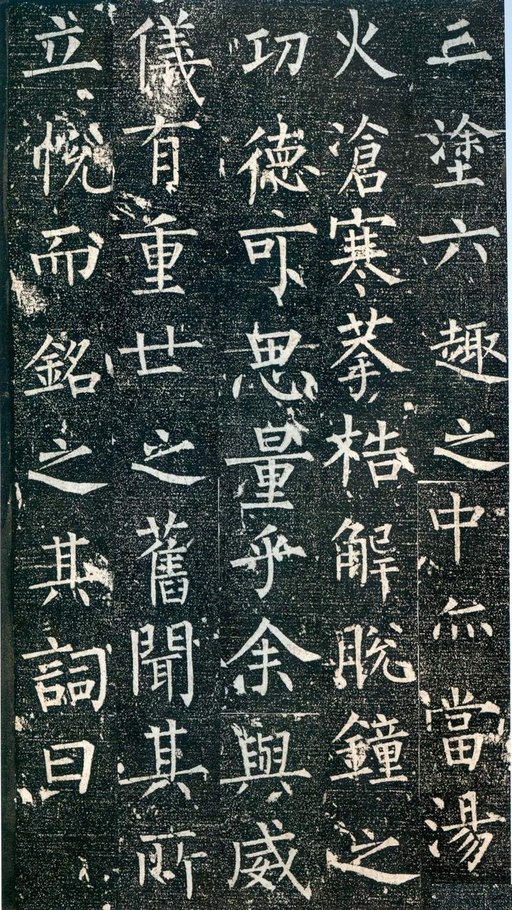 三塗六趣之中亦當湯
火滄寒拲梏解脫鐘之
功德可思量乎余與威
儀有重世之舊聞其所
立悅而銘之其詞曰